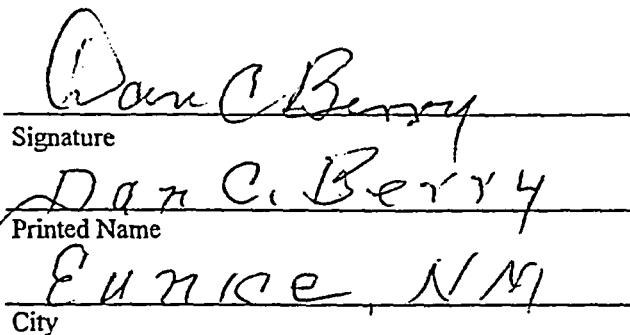 Dan C Berry
Signature
Dan C. Berry
Printed Name
Eunice, NM
City